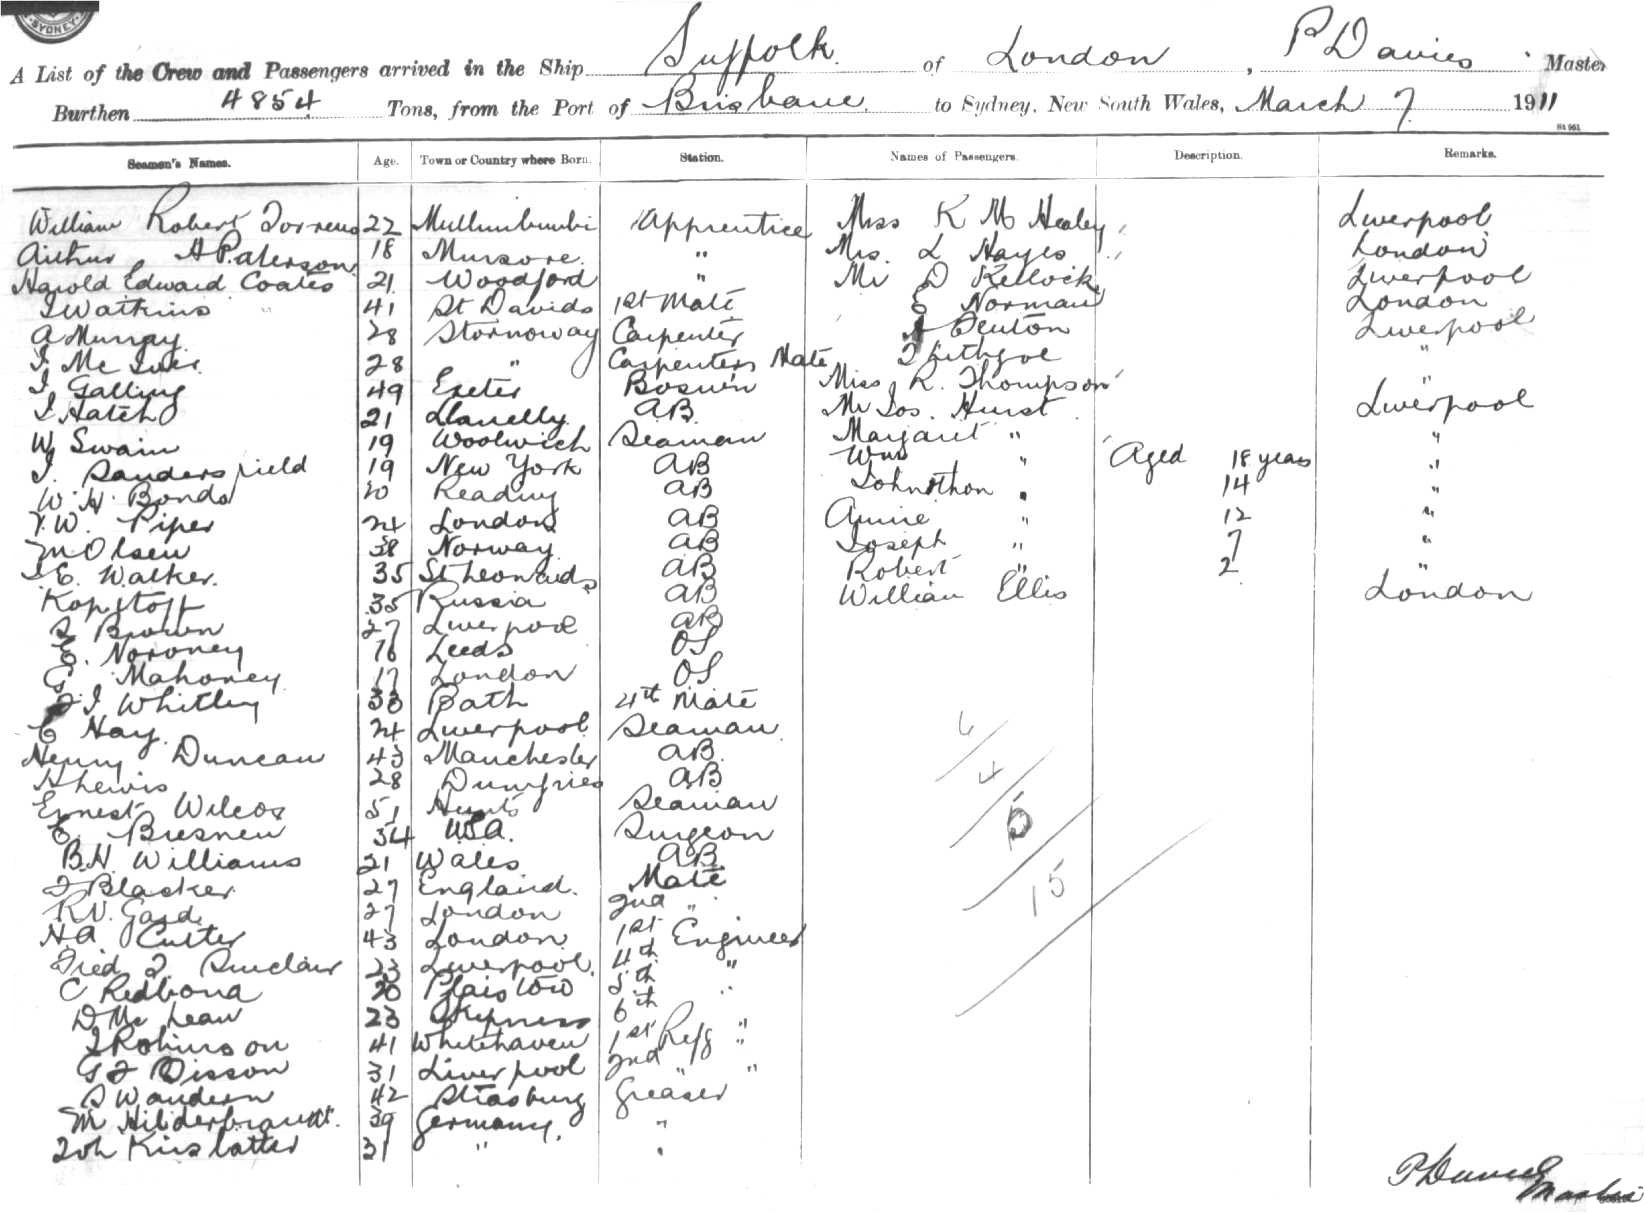 SYDNEY
A List of the Crew and Passengers arrived in the Ship Suffolk of London, P Davies Master
Burthen 4854 Tons, from the Port of Brisbane to Sydney, New South Wales, March 7 1911
Seamen's Names. Age. Town or Country where Born. Station. Names of Passengers. Description. Remarks.
William Robert Torrens 22 Mullumbimbi Apprentice Miss K M Healey Liverpool
Arthur H Paterson 18 " Mrs. L Hayes London
Harold Edward Coates 21 Woodford " Mr D Kellock Liverpool
J Watkins 41 St Davids 1st Mate E Norman London
A Murray 28 Stornoway Carpenter Denton Liverpool
J. Mc Iver 28 " Carpenters Mate J Lithgoe "
J Galling 49 Exeter Bosun Miss R. Thompson "
J Hatch 21 Llanelly AB Mr Jos. Hurst Liverpool
W Swain 19 Woolwich Seaman Margaret " "
J. Sandersfield 19 New York AB Wm " Aged 18 years "
W. H. Bonds 20 Reading AB Johnathon " 14 "
W. Piper 24 London AB Annie " 12 "
M Olsen 38 Norway AB Joseph " 7 "
J E. Walker. 35 St Leonards AB Robert " 2 "
Kopstoff 35 Russia AB William Ellis London
Brown 27 Liverpool AB
E. Noroney 16 Leeds OS
G. Mahoney 17 London OS
J. Whitley 33 Bath 4th Mate
C Hay. 24 Liverpool Seaman
Henry Duncan 43 Manchester AB
H Lewis 28 Dumfries AB
Ernest Wilcox 51 Hunts Seaman
E. Bresnen 54 USA. Surgeon
B.H. Williams 21 Wales AB
J Blacker 27 England. Mate
R.V. Gard 27 London 2nd "
H.A. Cutter 43 London 1st Engineer
Fred J. Sinclair 23 Liverpool. 4th "
C Redbond 20 Plaistow 5th "
D Mc Lean 23 Skipness 6th "
J Robinson 41 Whitehaven 1st Refg "
G F Disson 31 Liverpool 2nd " "
S Wandern 42 Strasburg Greaser
M Hilderbrandt. 39 Germany. "
Joh Kirslatter 31 " "
6
4
5
15
P Davies
Master